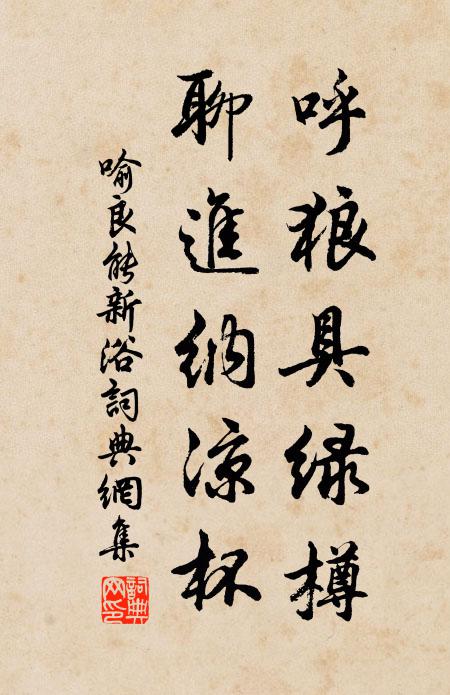 呼狼具绿樽
聊進纳凉杯
喻良能新浴詞典網集
詞典网印